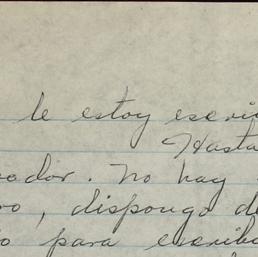 le estoy escri
Hasta
edor. No hay
ro, dispongo de
o para escribi